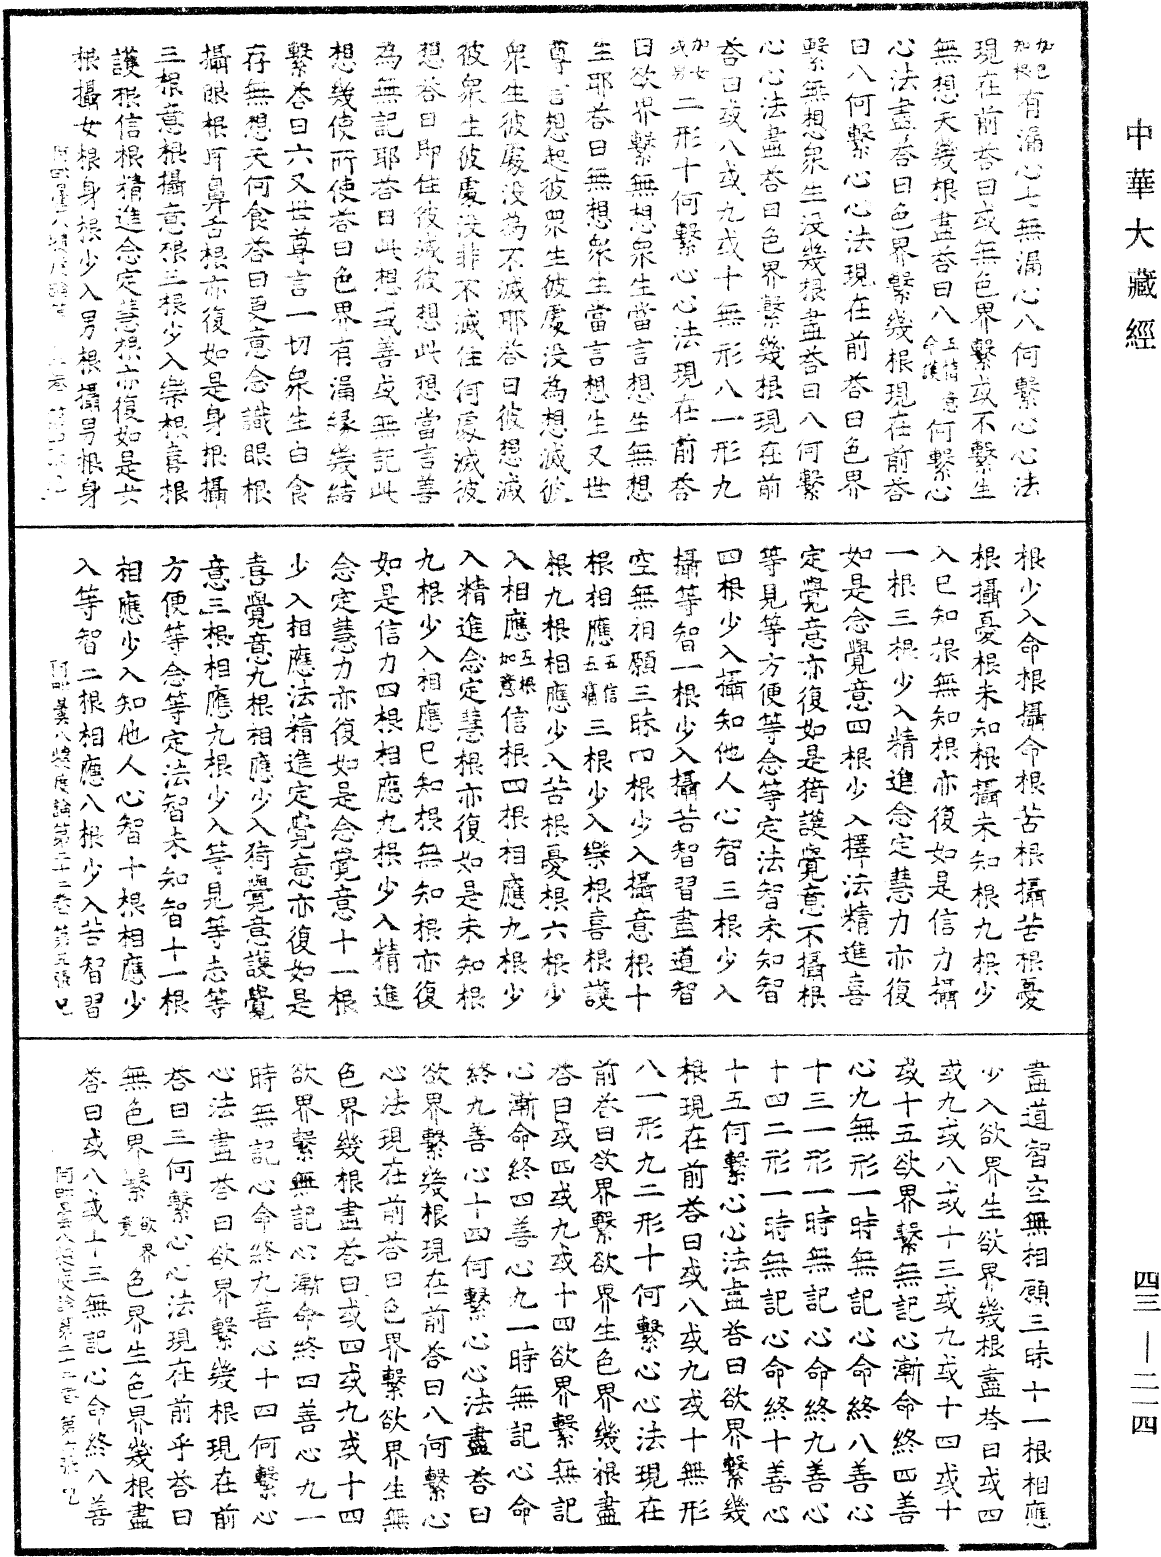 中華大藏經
加已知根有漏心七無漏心八何繫心心法
現在前荅曰或無色界繫或不繫生
無想天幾根盡荅曰八五情意命護何繫心
心法盡荅曰色界繫幾根現在前荅
曰八何繫心心法現在前荅曰色界
繫無想衆生没幾根盡荅曰八何繫
心心法盡荅曰色界繫幾根現在前
荅曰或八或九或十無形八一形九
加女或男二形十何繫心心法現在前荅
曰欲界繫無想衆生當言想生無想
生耶荅曰無想衆生當言想生又世
尊言想起彼眾生彼處没為想滅彼
衆生彼處没為不滅耶荅曰彼想滅
彼衆生彼處没非不滅住何處滅彼
想荅曰即住彼滅彼想此想當言善
為無記耶荅曰此想或善或無記此
想幾使所使荅曰色界有漏緣幾結
繫荅曰六又世尊言一切衆生由食
存無想天何食荅曰更意念識眼根
攝眼根耳鼻舌根亦復如是身根攝
三根意根攝意根三根少入樂根喜根
護根信根精進念定慧根亦復如是六
根攝女根身根少入男根攝男根身
根少入命根攝命根苦根攝苦根憂
根攝憂根未知根攝未知根九根少
入已知根無知根亦復如是信力攝
一根三根少入精進念定慧力亦復
如是念覺意四根少入擇法精進喜
定覺意亦復如是猗護覺意不攝根
等見等方便等念等定法智未知智
四根少入攝知他人心智三根少入
攝等智一根少入攝苦智習盡道智
空無相願三昧四根少入攝意根十
根相應五信五痛三根少入樂根喜根護
根九根相應少入苦根憂根六根少
入相應五根如意信根四根相應九根少
入精進念定慧根亦復如是未知根
九根少入相應已知根無知根亦復
如是信力四根相應九根少入精進
念定慧力亦復如是念覺意十一根
少入相應法精進定覺意亦復如是
喜覺意九根相應少入猗覺意護覺
意三根相應九根少入等見等志等
方便等念等定法智未知智十一根
相應少入知他人心智十根相應少
入等智二根相應八根少入苦智習
阿毗曇八揵度論第二十二卷 第五張 已
盡道智空無相願三昧十一根相應
少入欲界生欲界幾根盡荅曰或四
或九或八或十三或九或十四或十
或十五欲界繫無記心漸命終四善
心九無形一時無記心命終八善心
十三一形一時無記心命終九善心
十四二形一時無記心命終十善心
十五何繫心心法盡荅曰欲界繫幾
根現在前荅曰或八或九或十無形
八一形九二形十何繫心心法現在
前荅曰欲界繫欲界生色界幾根盡
荅曰或四或九或十四欲界繫無記
心漸命終四善心九一時無記心命
終九善心十四何繫心心法盡荅曰
欲界繫幾根現在前荅曰八何繫心
心法現在前荅曰色界繫欲界生無
色界幾根盡荅曰或四或九或十四
欲界繫無記心漸命終四善心九一
時無記心命終九善心十四何繫心
心法盡荅曰欲界繫幾根現在前
荅曰三何繫心心法現在前乎荅曰
無色界繫欲界竟色界生色界幾根盡
荅曰或八或十三無記心命終八善
四三—二一四